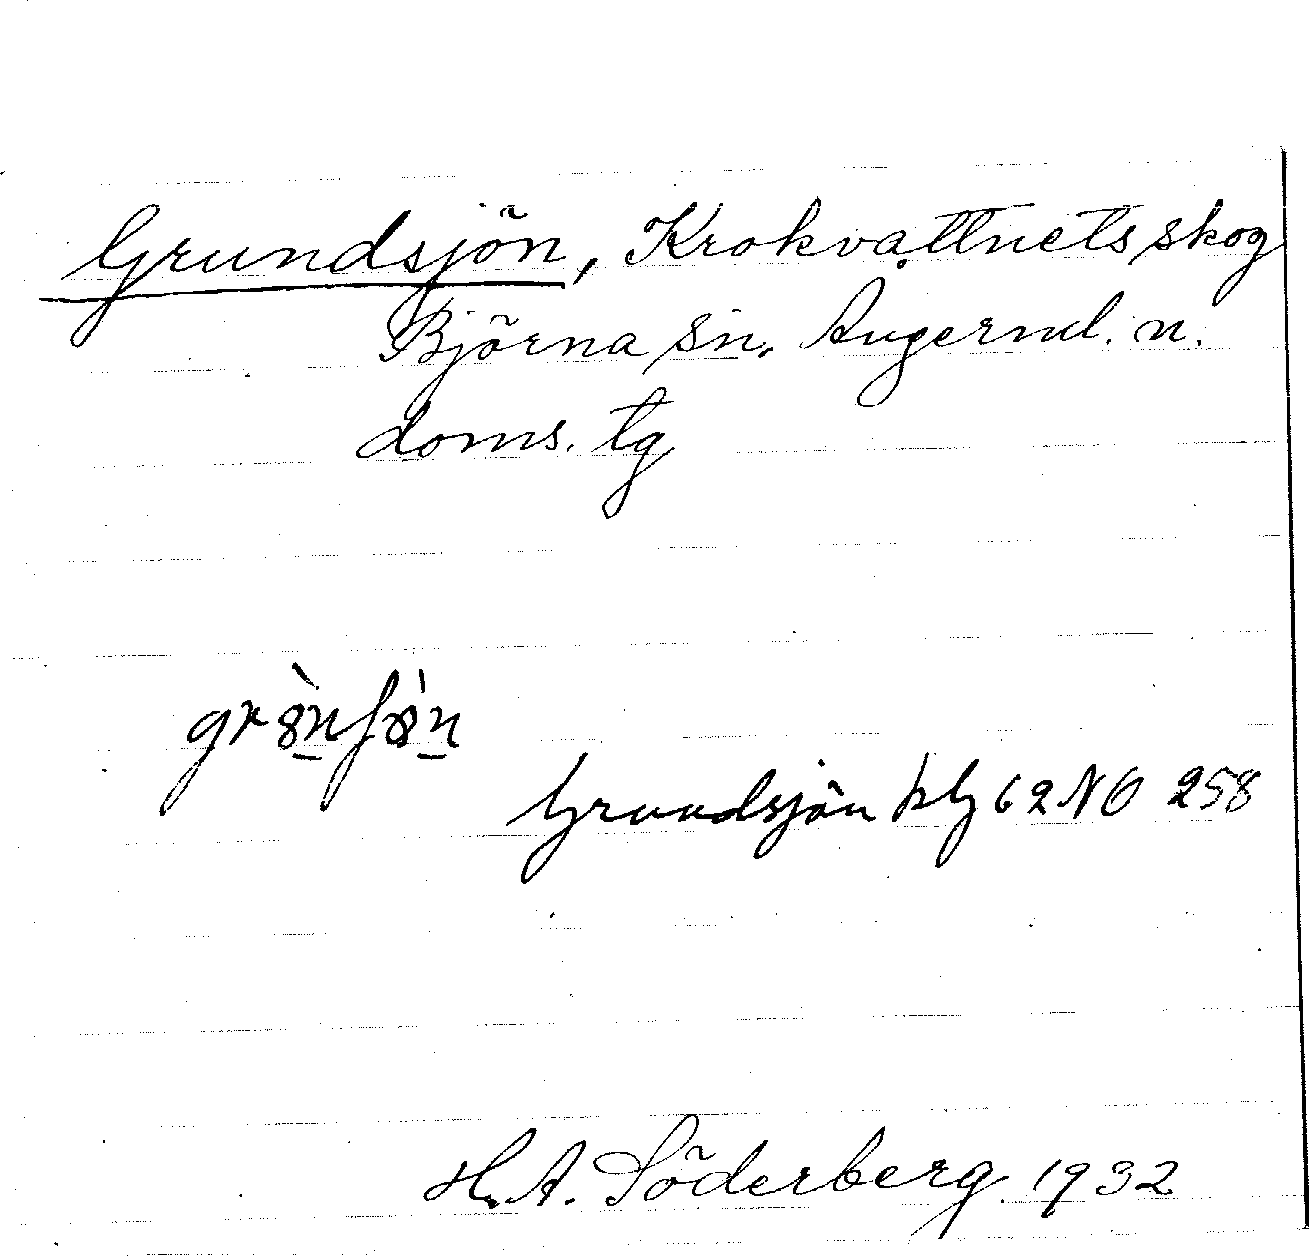 Grundsjön, Krokvattnets skog
Björna sn. Ångerml. n.
doms. tg
Grundsjön 62 NO 258
H. A. Söderberg 1932